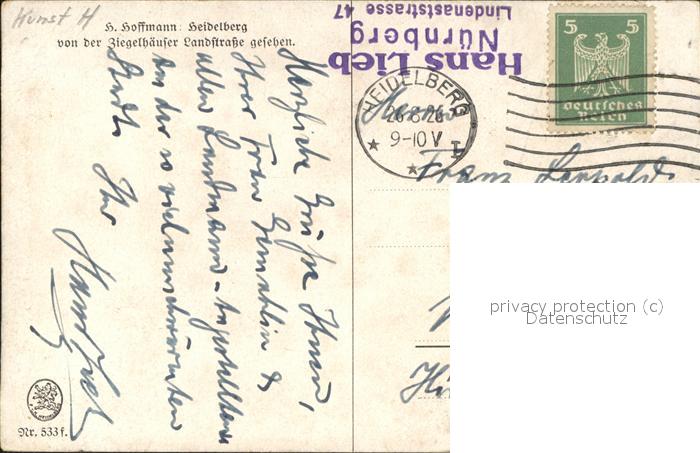 Kunst H
H. Hoffmann: Heidelberg
von der Ziegelhäuser Landstraße gesehen.
Hans Lieb
Nürnberg
Lindenaststrasse 47
HEIDELBERG
26.8.26
9-10 V
5 5
Deutsches
Reich
Herrn
Franz Leopold
Herzliche Grüße Ihnen,
Ihrer Frau Gemahlin &
allen Landmann-Angestellten
von der so vielumschwärmten
Stadt Ihr
Hans Lieb
Nr. 533 f.
privacy protection (c)
Datenschutz